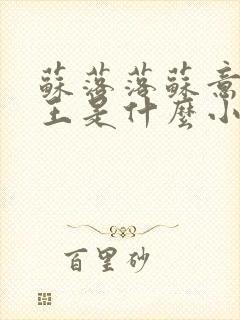 蘇落落蘇意
主是什麼小
百里砂